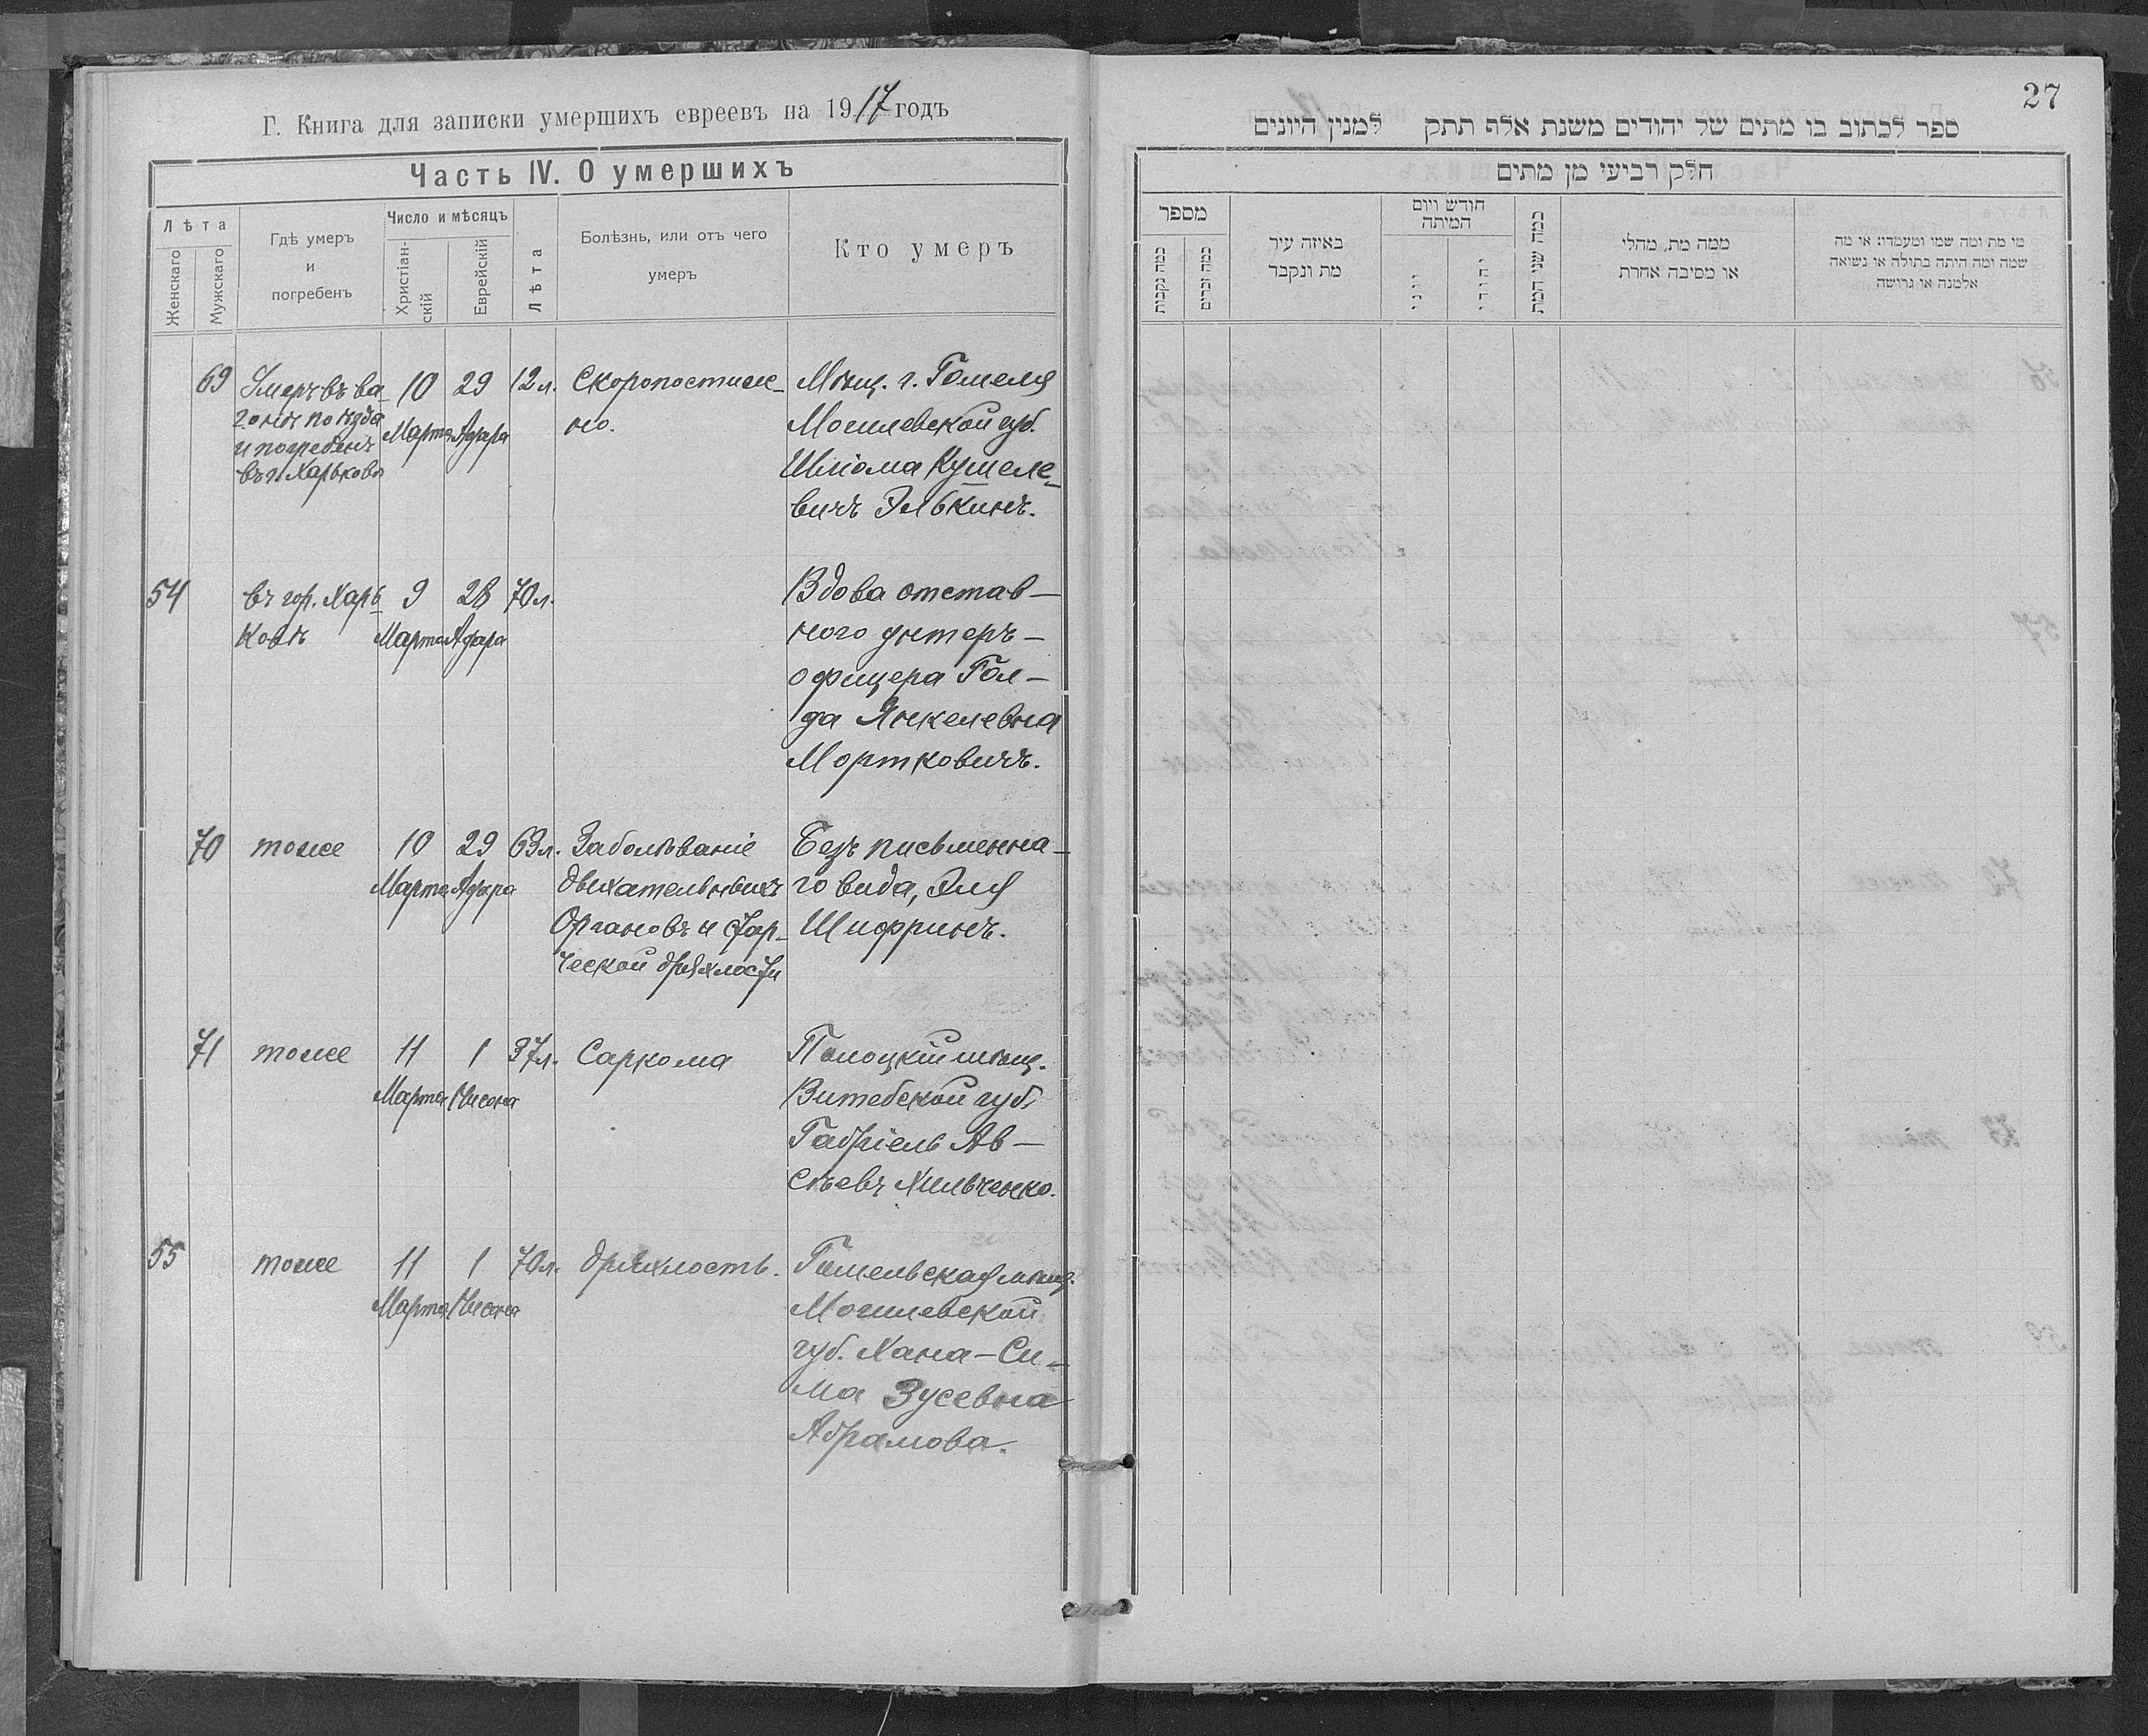 Г. Книга для записки умершихъ евреевъ на 1917 годъ
Часть IV. О умершихъ
Лѣта
Женскаго
Мужскаго
Гдѣ умеръ
и
погребенъ
Число и мѣсяцъ
Христіан-
скій
Еврейскій
Лѣта
Болѣзнь, или отъ чего
умеръ
Кто умеръ
69 Умеръ въ ва- 10 29 12 л. Скоропостиж- Мѣщ. г. Гомеля
гонѣ поѣзда Марта Адара но. Могилевской губ.
и погребенъ
въ г. Харьковѣ Шліома Кушеле-
вичъ Элькинъ.
54 въ гор. Харь- 9 28 70 л. Вдова отстав-
ковѣ Марта Адара ного унтеръ-
офицера Гол-
да Янкелевна
Мортковичъ.
70 тоже 10 29 63 л. Заболѣваніе Безъ письменна-
Марта Адара дыхательныхъ го вида, Эля
органовъ и стар- Шифринъ.
ческой дряхлости
71 тоже 11 1 37 л. Саркома Полоцкій мѣщ.
Марта Нисона Витебской губ.
Габріель Ав-
сѣевъ Хильченко.
55 тоже 11 1 70 л. дряхлость. Гомельская мѣщ.
Марта Нисона Могилевской
губ. Хана-Си-
ма Зусевна
Абрамова.
27
ספר לכתוב בו מתים של יהודים משנת אלף תתק למנין היונים
חלק רביעי מן מתים
מספר
כמה נקבות
כמה זכרים
באיזה עיר
מת ונקבר
חודש ויום
המיתה
יוני
יהודי
כמה שני המת
ממה מת, מחלי
או מסיבה אחרת
מי מת ומה שמו ומעמדו: או מה
שמה ומה היתה בתולה או נשואה
אלמנה או גרושה